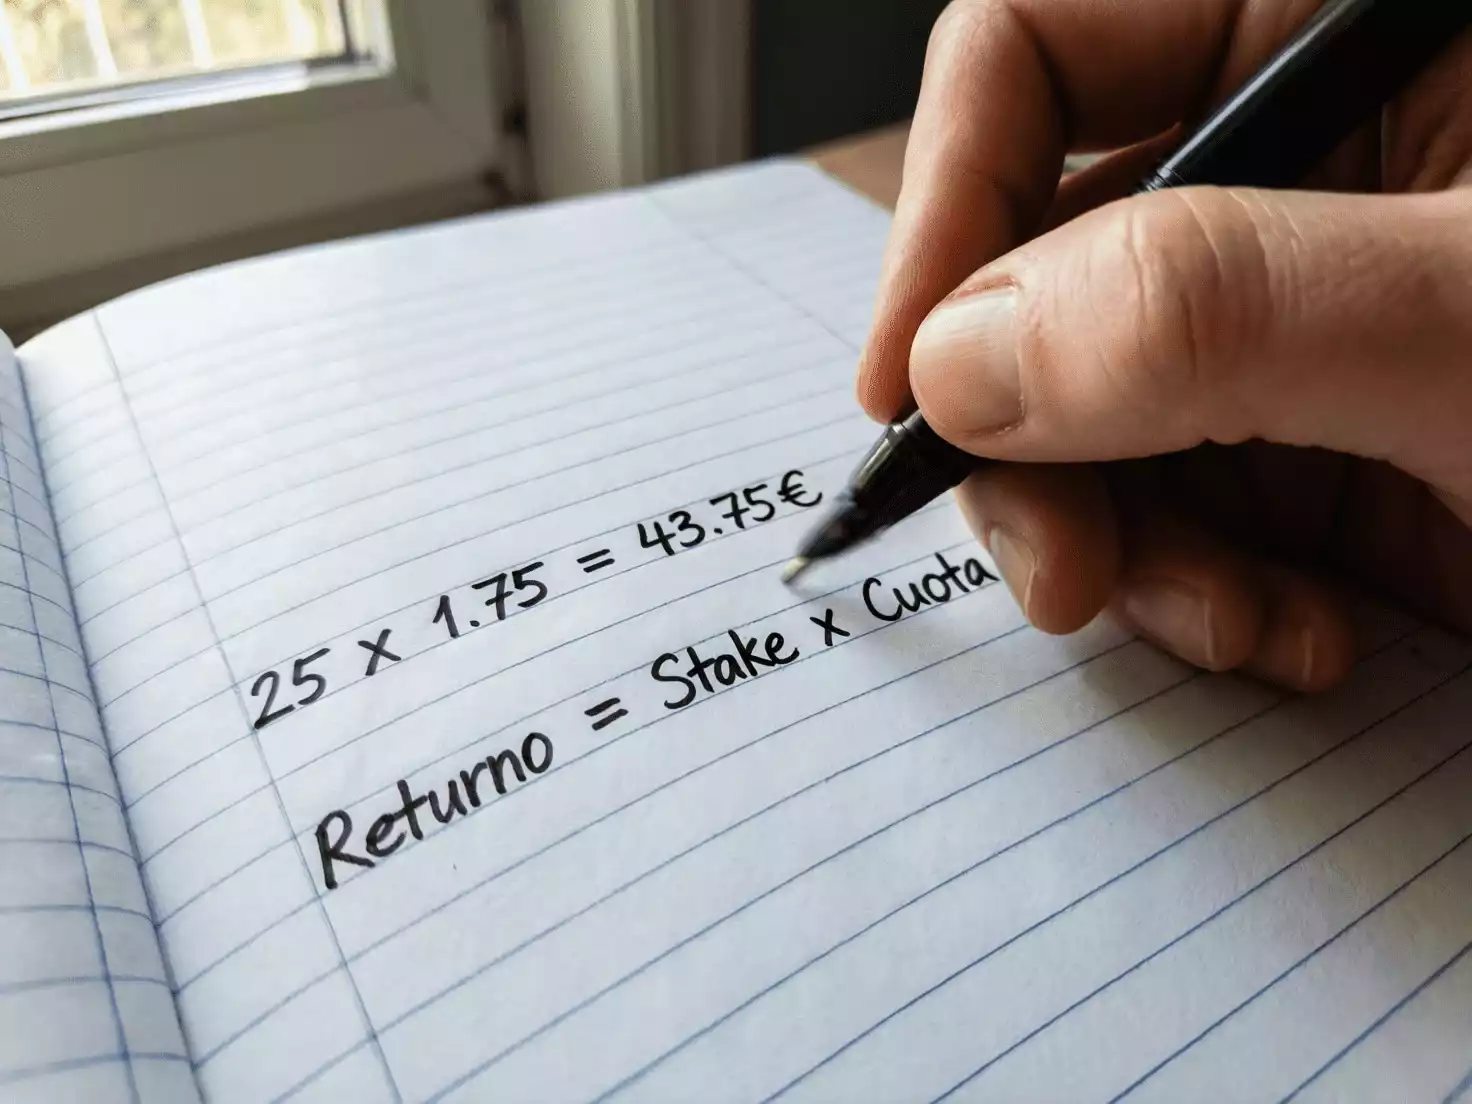 25 x 1.75 = 43.75€
Returno = Stake x Cuota